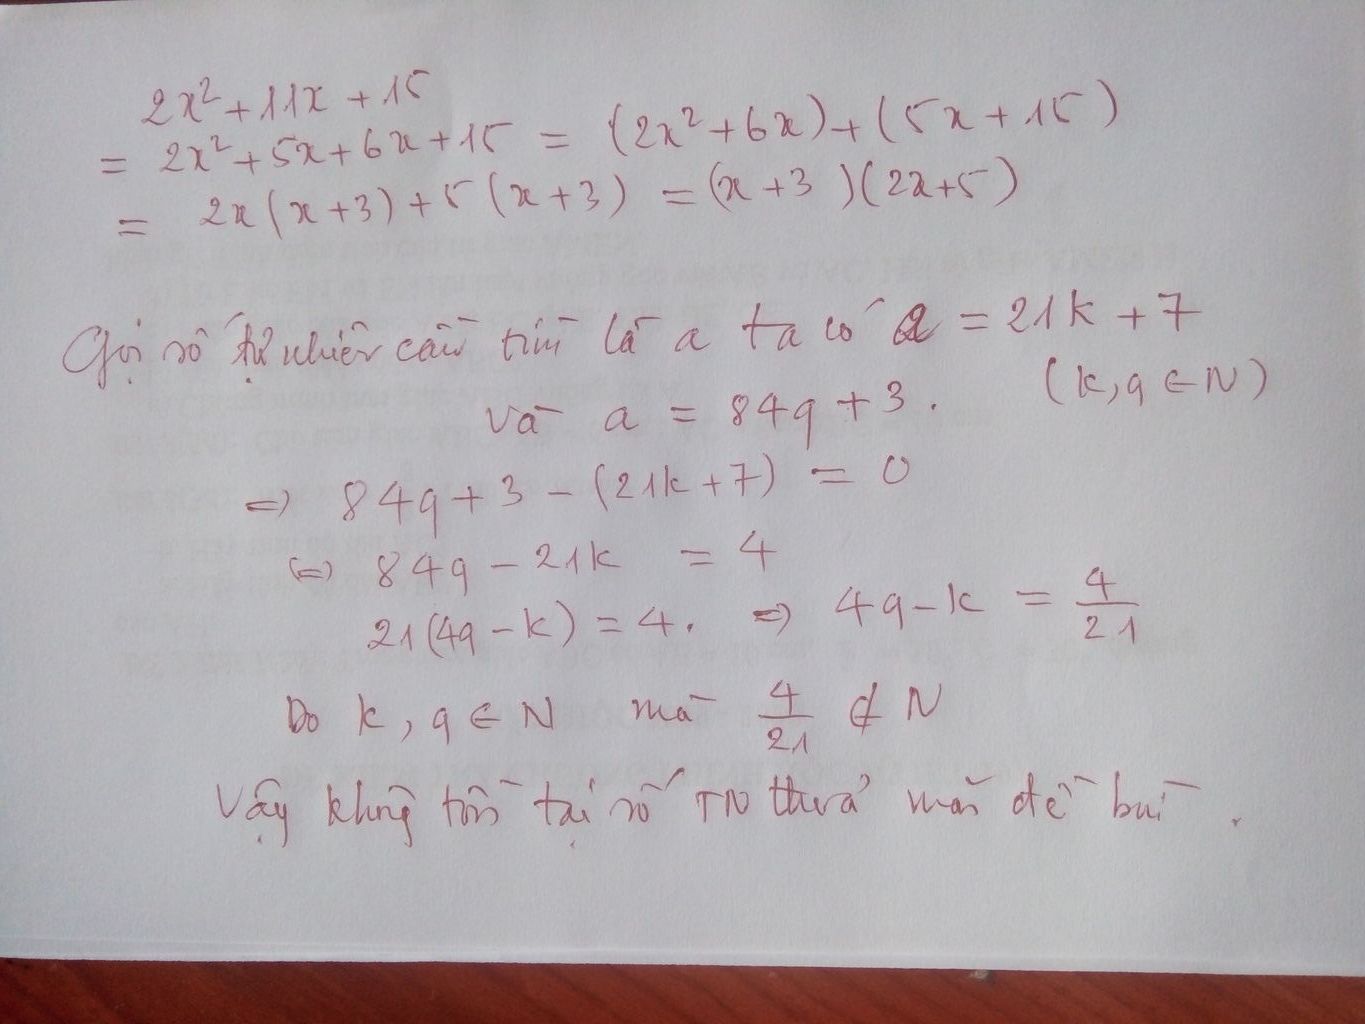 2x² + 11x + 15
= 2x² + 5x + 6x + 15 = (2x² + 6x) + (5x + 15)
= 2x(x+3) + 5(x+3) = (x+3)(2x+5)
Gọi số tự nhiên cần tìm là a ta có a = 21k + 7
và a = 84q + 3. (k, q ∈ N)
=> 84q + 3 - (21k + 7) = 0
<=> 84q - 21k = 4
21(4q - k) = 4. => 4q - k = 4/21
Do k, q ∈ N mà 4/21 ∉ N
Vậy không tồn tại số TN thoả mãn đề bài.